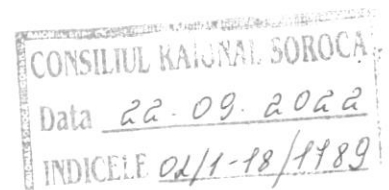 CONSILIUL RAIONAL SOROCA
Data 22.09.2022
INDICELE 02/1-18/1789